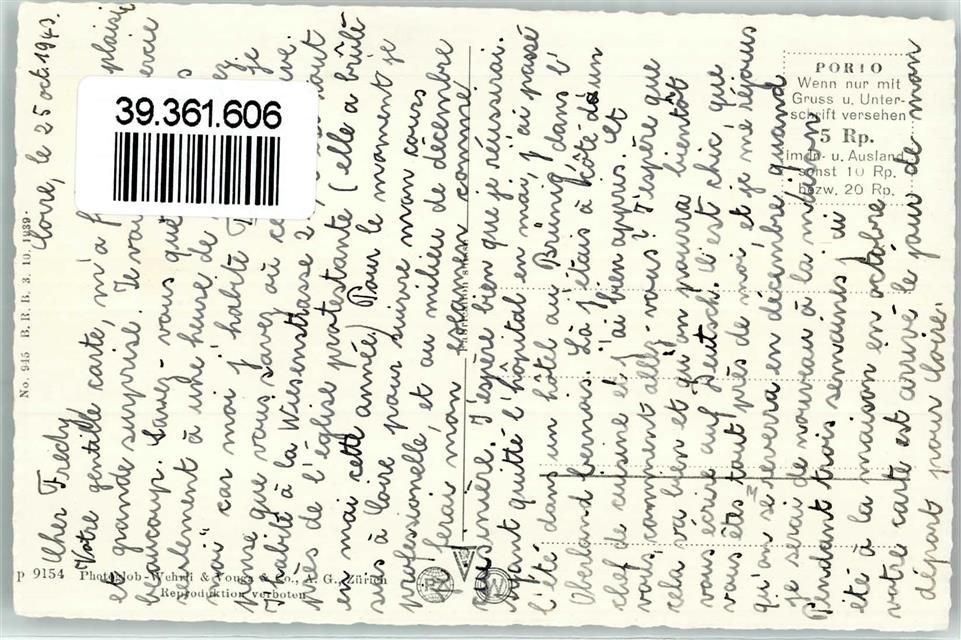 Coire, le 25 oct. 1943
Cher Frédy
Votre gentille carte, m'a plaisir
et grande surprise. Je vous remercie
beaucoup. Savez-vous que
seulement à une heure de
moi" car moi j'habite Je
pense que vous savez où
J'habite à la Wiesenstrasse 2, tout
près de l'église protestante (elle a brûlé
en mai cette année.) Pour le moment je
suis à Coire pour suivre mon cours
professionelle, et au milieu de décembre
ferai mon examen comme
cuisinière. J'espère bien que je réussirai.
Ayant quitté l'hôpital en mai, j'ai passé
l'été dans un hôtel au Brünig dans l'
Oberland bernois. Là j'étais à côté d'un
chef de cuisine et j'ai bien appris. Et
vous, comment allez-vous? J'espère que
cela va bien et qu'on pourra bientôt
vous écrire auf Deutsch. C'est chic que
vous êtes tout près de moi et je me réjouis
qu'on se reverra en décembre quand
je serai de nouveau à la maison.
Pendant trois semaines j'ai
été à la maison en octobre
votre carte est arrivé le jour de mon
départ pour Coire.
39.361.606
PORTO
Wenn nur mit
Gruss u. Unter-
schrift versehen
5 Rp.
im In- u. Ausland
sonst 10 Rp.
bezw. 20 Rp.
No. 945 B. R. B. 3. 10. 1939.
p 9154 Photoglob-Wehrli & Vouga & Co., A. G., Zürich
Reproduktion verboten